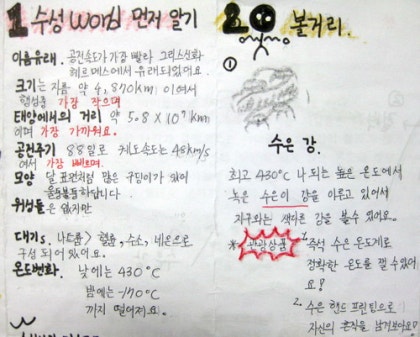 1 수성 World 먼저 알기
이름유래. 공전속도가 가장 빨라 그리스신화
헤르메스에서 유래되었어요.
크기는 지름 약 4,870km 이여서
행성중 가장 작으며
태양에서의 거리 약 5.8×10⁷km
이며 가장 가까워요.
공전주기 88일로 궤도속도는 48km/s
에서 가장 빠르며.
모양 달 표면처럼 많은 구덩이가 있어
울퉁불퉁하답니다.
위성들은 없지만
대기는. 나트륨> 헬륨, 수소, 네온으로
구성 되어 있어요.
온도변화. 낮에는 430℃
밤에는 -170℃
까지 떨어져요.
2 볼거리.
①
수은 강.
최고 430℃ 나 되는 높은 온도에서
녹은 수은이 강을 이루고 있어서
지구와는 색다른 강을 볼수 있어요.
※ 관광상품
1. 즉석 수은 온도계로
정확한 온도를 잴 수 있어
요!
2. 수은 핸드 프린팅으로
자신의 흔적을 남겨보아요!